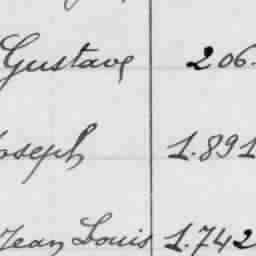 Gustave 206.
Joseph 1.891
Jean Louis 1.742